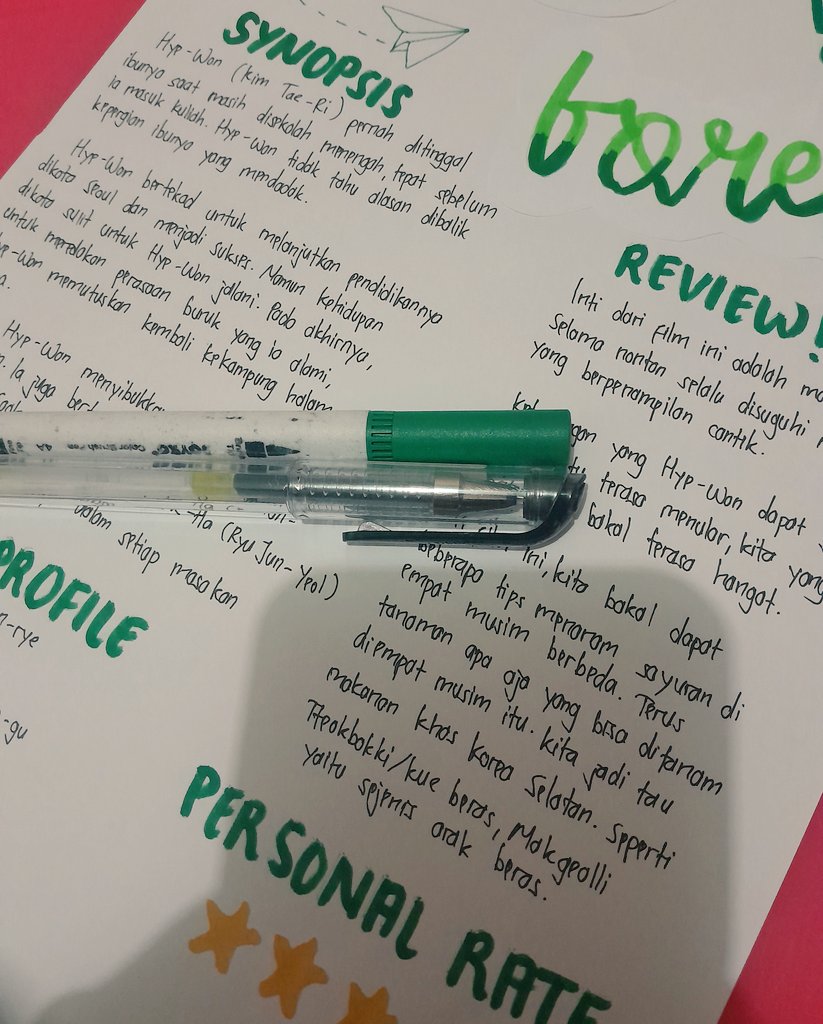 SYNOPSIS
Hye-Won (Kim Tae-Ri) pernah ditinggal
ibunya saat masih disekolah menengah, tepat sebelum
Ia masuk kuliah. Hye-Won tidak tahu alasan dibalik
kepergian ibunya yang mendadak.
Hye-Won bertekad untuk melanjutkan pendidikannya
dikota Seoul dan menjadi sukses. Namun kehidupan
dikota sulit untuk Hye-Won jalani. Pada akhirnya,
untuk meredakan perasaan buruk yang ia alami,
Hye-Won memutuskan kembali kekampung halam
a.
Hye-Won menyibukka
n. Ia juga
Ha (Ryu Jun-Yeol)
dalam setiap masakan
PROFILE
n-rye
-gu
fore
REVIEW!
Inti dari film ini adalah
Selama nonton selalu disuguhi
yang berpenampilan cantik.
gan yang Hye-Won dapat
tu terasa menular, kita yang
bakal terasa hangat.
ini, kita bakal dapat
beberapa tips menanam sayuran di
empat musim berbeda. Terus
tanaman apa aja yang bisa ditanam
diempat musim itu. kita jadi tau
makanan khas korea Selatan. Seperti
Tteokbokki/kue beras, Makgeolli
yaitu sejenis arak beras.
PERSONAL RATE